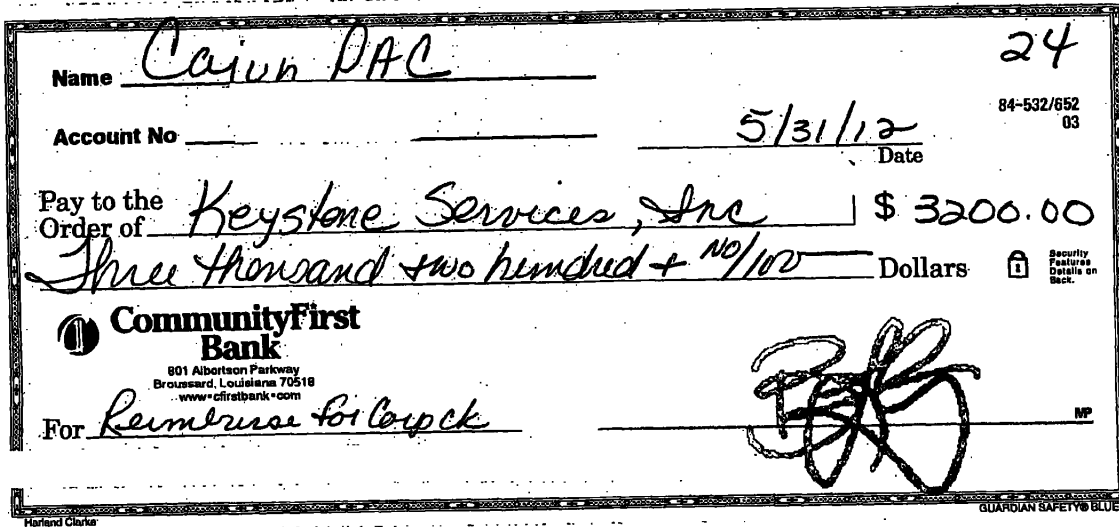 Name Cajun PAC
24
84-532/652
03
Account No
5/31/12
Date
Pay to the
Order of Keystone Services, Inc $ 3200.00
Three thousand two hundred + NO/100 Dollars
Security
Features
Details on
Back.
CommunityFirst
Bank
801 Albertson Parkway
Broussard, Louisiana 70518
www•cfirstbank•com
For Reimburse for Corp ck
MP
Harland Clarke
GUARDIAN SAFETY® BLUE